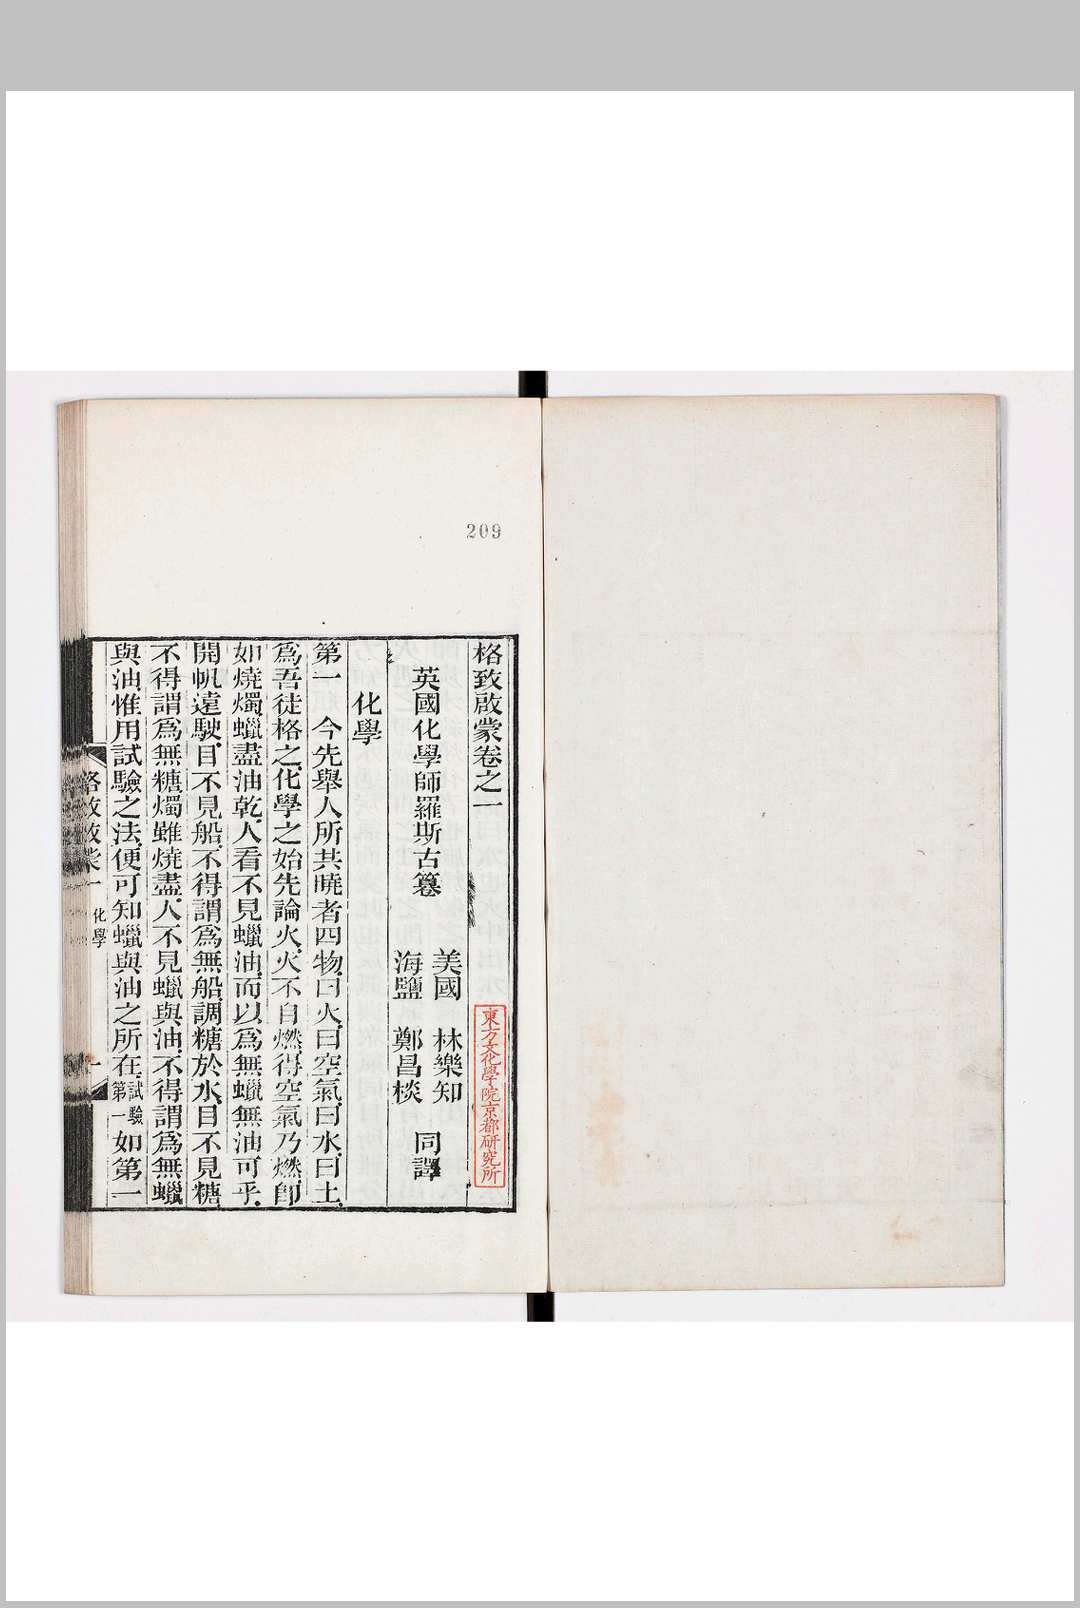 209
格致啟蒙卷之一
英國化學師羅斯古纂
美國 林樂知
海鹽 鄭昌棪
同譯
化學
第一 今先舉人所共曉者四物曰火曰空氣曰水曰土
爲吾徒格之化學之始先論火火不自燃得空氣乃燃卽
如燒燭蠟盡油乾人看不見蠟油而以爲無蠟無油可乎
開帆遠駛目不見船不得謂爲無船調糖於水目不見糖
不得謂爲無糖燭雖燒盡人不見蠟與油不得謂爲無蠟
與油惟用試驗之法便可知蠟與油之所在試驗第一如第一
格致啟蒙一 化學 一
東方文化學院京都研究所